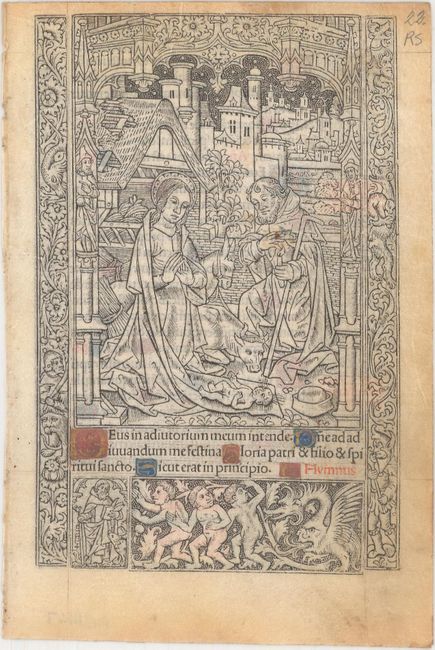 22.
RS
Deus in adiutorium meum intende. Dñe ad ad
iuuandum me festina Gloria patri & filio & spi
ritui sancto. Sicut erat in principio. Hymnus